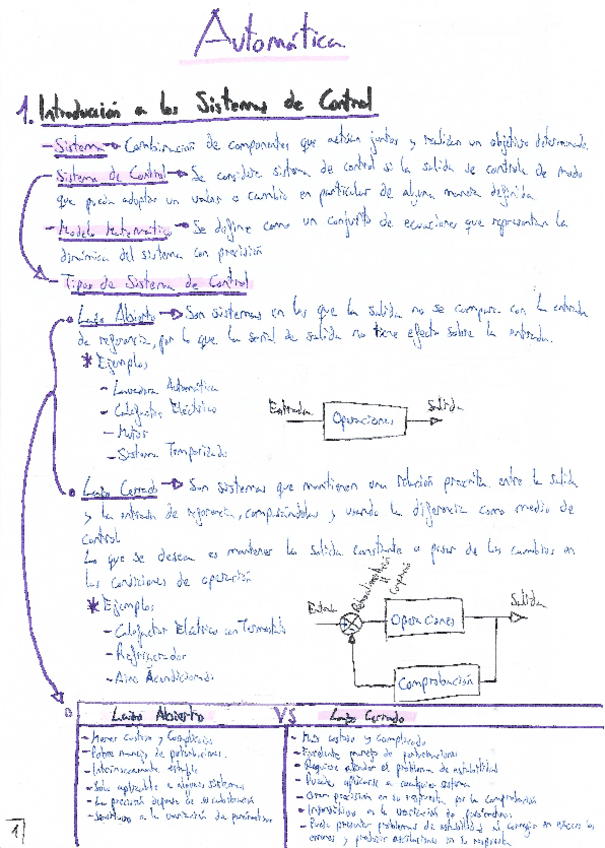 Automática
1. Introducción a los Sistemas de Control
- Sistema → Combinación de componentes que actúan juntos y realizan un objetivo determinado.
Sistema de Control → Se considera sistema de control si la salida se controla de modo
que pueda adoptar un valor o cambio en particular de alguna manera definida
- Modelo Matemático → Se define como un conjunto de ecuaciones que representan la
dinámica del sistema con precisión
- Tipos de Sistema de Control
• Lazo Abierto → Son sistemas en los que la salida no se compara con la entrada
de referencia, por lo que la señal de salida no tiene efecto sobre la entrada.
* Ejemplos
- Lavadora Automática
- Calefactor Eléctrico
- Motor
- Sistema Temporizado
Entrada
Operaciones
Salida
• Lazo Cerrado → Son sistemas que mantienen una relación prescrita entre la salida
y la entrada de referencia, comparándolas y usando la diferencia como medio de
control
Lo que se desea es mantener la salida constante a pesar de los cambios en
las condiciones de operación
* Ejemplos
- Calefactor Eléctrico con Termostato
- Refrigerador
- Aire Acondicionado
Entrada
Operaciones
Salida
Comprobación
Lazo Abierto VS Lazo Cerrado
- Menor costoso y complicado
- Pobre manejo de perturbaciones.
- Intrínsecamente estable
- Solo aplicable a algunos sistemas
- La precisión depende de su calibración
- Sensitivo a la variación de parámetros
- Más costoso y complicado
- Excelente manejo de perturbaciones
- Requiere atender el problema de estabilidad
- Puede aplicarse a cualquier sistema
- Gran precisión en su respuesta por la comprobación
- Insensitivo a la variación de parámetros
- Puede presentar problemas de estabilidad al corregir en exceso los
errores y producir oscilaciones en la respuesta
1